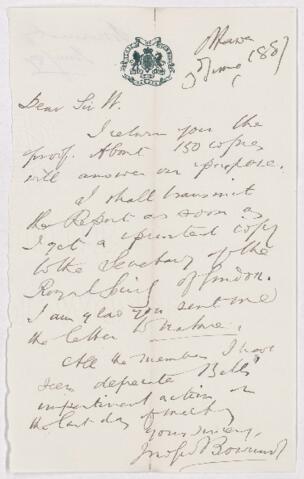 Ottawa
3 June 1887
Dear Sir W.
I return you the
proof. About 150 copies
will answer our purpose.
I shall transmit
the Report as soon as
I get a printed copy
to the Secretary of the
Royal Socy of London.
I am glad you sent me
the letter to Nature.
All the members I have
seen deprecate Bell's
impertinent action on
the last day of meeting
Yours sincerely,